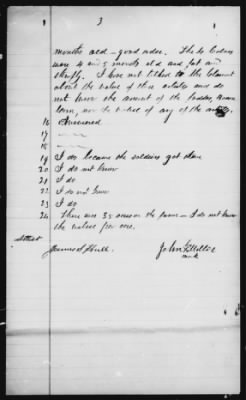 3
months old - good order. The 4 
were 4 and 5 months old and fat and
thrifty. I have not talked to the Claimant
about the value of these articles and do
not know the amount of the fodder,
corn, nor the value of any of the
16 Answered
17 " "
18 " "
19 I do because the soldiers got them
20 I do not know
21 I do
22 I do not know
23 I do
24 There are 35 acres in the farm - I do not know
the value per acre.
Attest
John
mark